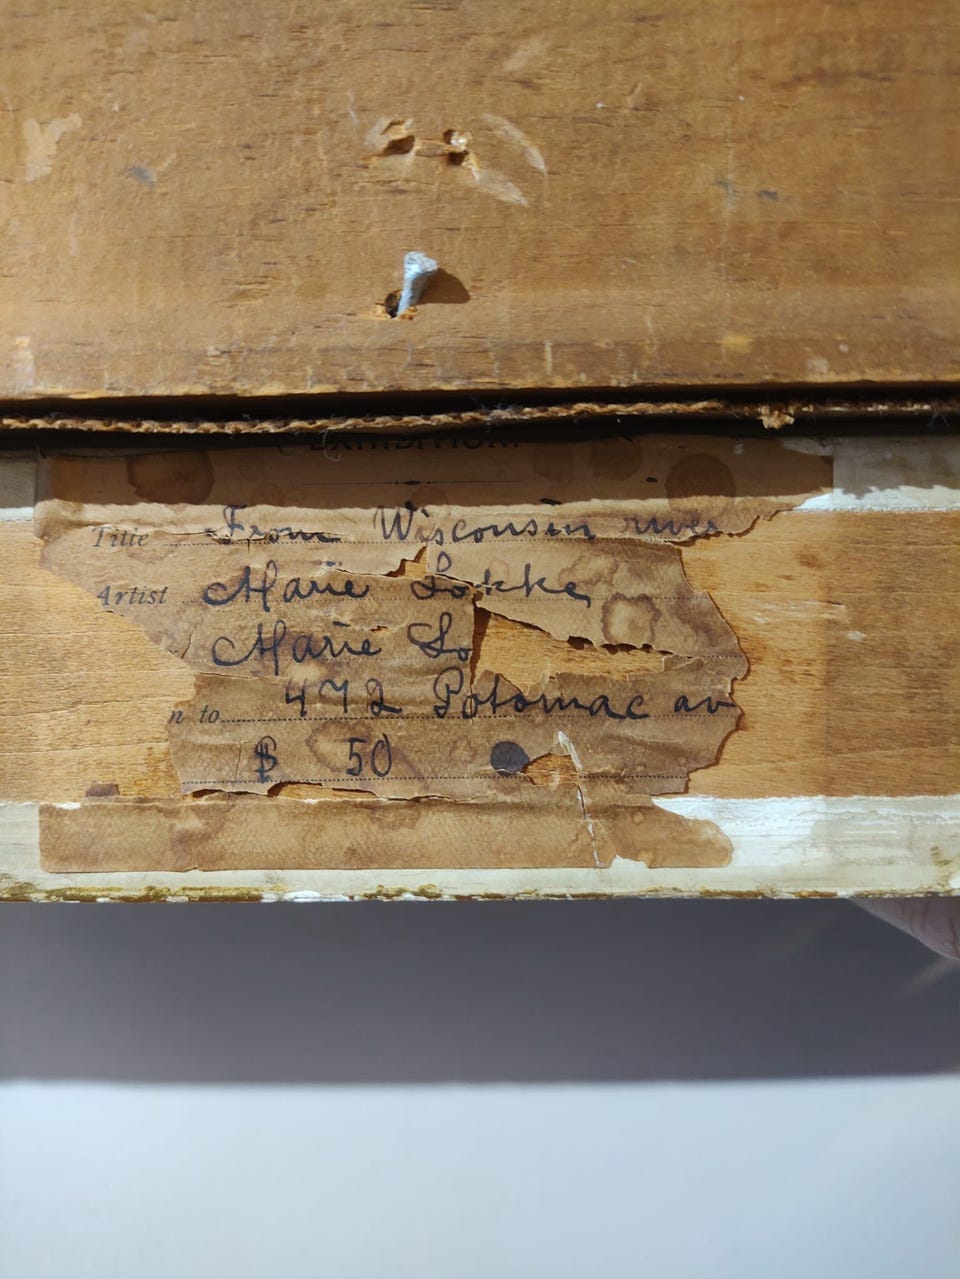 EXHIBITION.
Title From Wisconsin river
Artist Marie Lokke
Marie Lo
n to 472 Potomac av
$ 50